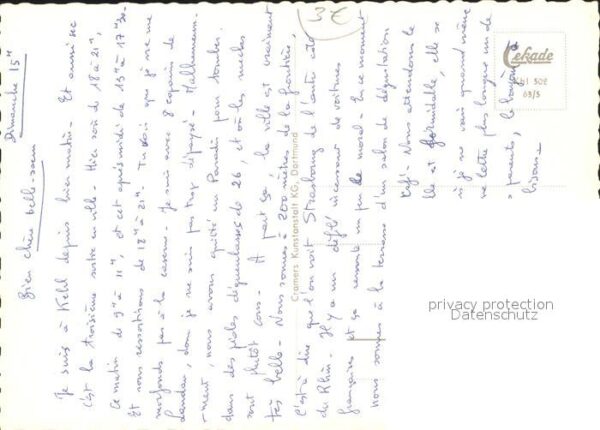 Dimanche 15H
Bien chère belle-soeur
Je suis à Kehl depuis hier matin. Et aussi sec
c'est la troisième sortie en ville. Hier soir de 18 à 21H,
ce matin de 9H à 11H, et cet après-midi de 13H à 17H30.
Et nous ressortirons de 18H à 21H. Tu vois que je ne me
morfonds pas à la caserne. Je suis avec 8 copains de
Landau, donc je ne suis pas trop dépaysé. Malheureuse-
-ment, nous avons quitté un Paradis pour tomber
dans des pioles dégueulasses de 26, et où les mecs
sont plutôt cons. A part ça la ville est vraiment
très belle. Nous sommes à 200 mètres de la frontière,
c'est à dire que l'on voit Strasbourg de l'autre côté
du Rhin. Il y a un défilé incessant de voitures
françaises et ça remonte un peu le moral. En ce moment
nous sommes à la terrasse d'un salon de dégustation
Café. Nous attendons le
elle est formidable, elle se
si je ne vais quand même
ne lettre plus longue un de
s parents, le
bisous
WE
Cekade
KHI 502
63/5
Cramers Kunstanstalt KG, Dortmund
privacy protection
Datenschutz